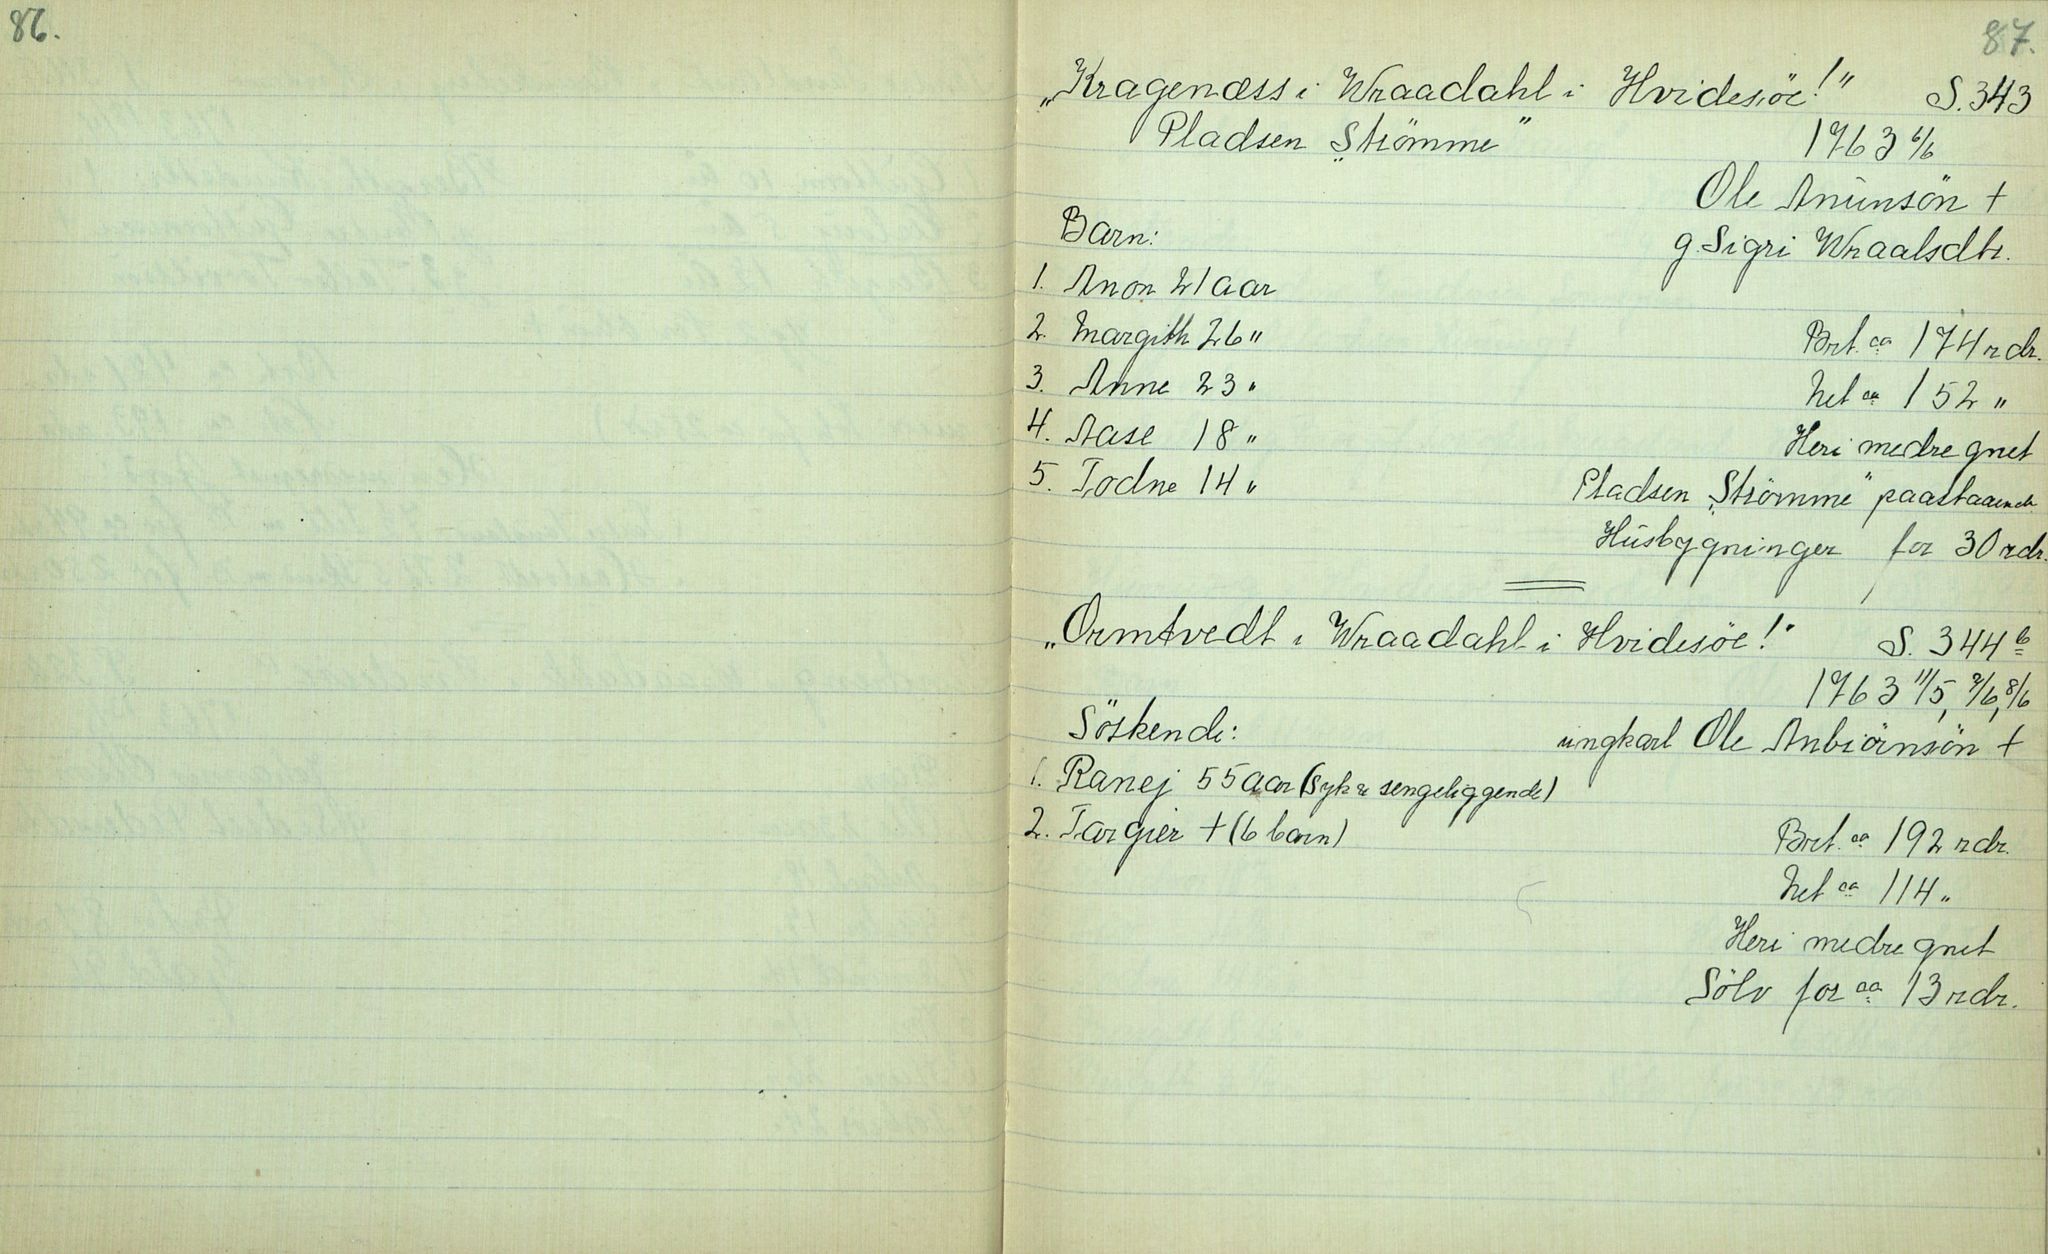 86.
87.
„Kragenæss i Wraadahl i Hvidesøe!" S. 343
Pladsen „Strömme" 1763 6/6
Ole Anunsön +
Barn: g. Sigri Wraalsdtr.
1. Anon 21 aar
2. Margith 26 " Brt. ca 174 rdr.
3. Anne 23 " Net ca 152 "
4. Aase 18 " Heri medregnet
5. Todne 14 " Pladsen „Strömme" paastaaende
Husbygninger for 30 rdr.
„Ormtvedt i Wraadahl i Hvidesøe!" S. 344 b
1763 11/5, 7/6, 8/6
Söskende: ungkarl Ole Anbiörnsön +
1. Ranej 55 aar (syk & sengeliggende)
2. Targier + (6 barn) Brt. ca 192 rdr.
Net ca 114 "
Heri medregnet
Sölv for ca 13 rdr.